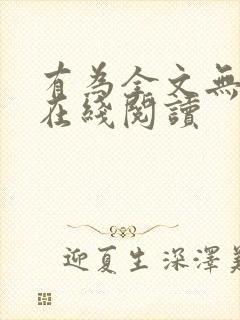 有為全文無
在綫閱讀
迎夏生深澤